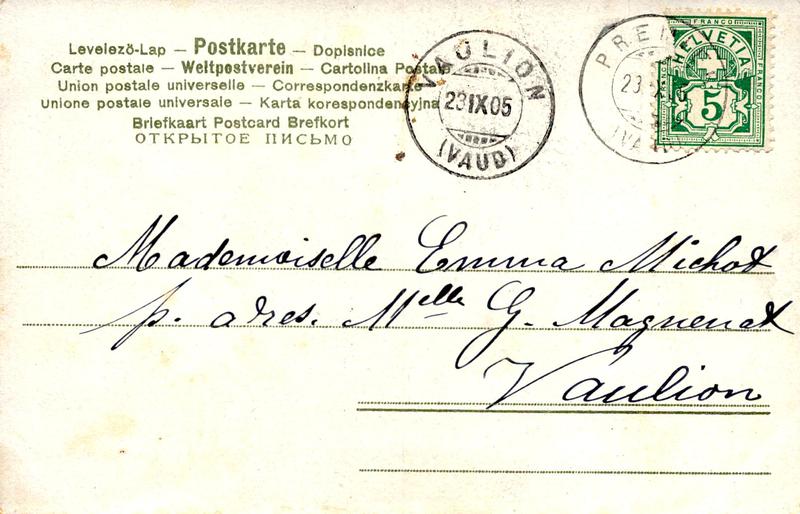 Levelező-Lap — Postkarte — Dopisnice
Carte postale — Weltpostverein — Cartolina Postale
Union postale universelle — Correspondenzkarte
Unione postale universale — Karta korespondencyjna
Briefkaart Postcard Brefkort
ОТКРЫТОЕ ПИСЬМО
VAULION
23 IX 05
(VAUD)
FRANCO
HELVETIA
FRANCO
FRANCO
5
FRANCO
Mademoiselle Emma Michot
p. adres. Melle G. Magnenat
Vaulion